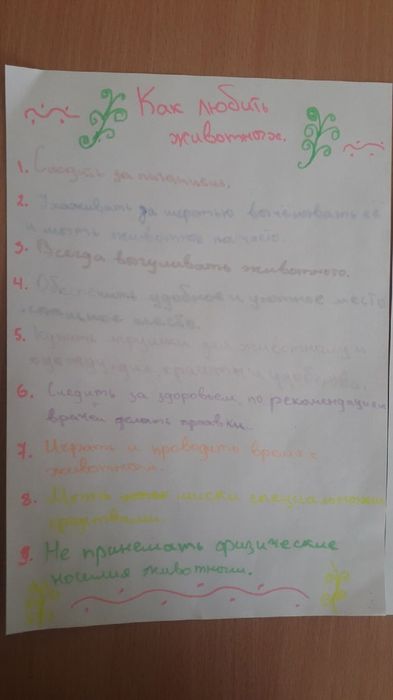 Как любить
животных.
1. Следить за питанием.
2. Ухаживать за шерстью вычёсывать её
и мыть животное по часто.
3. Всегда выгуливать животного.
4. Обеспечить удобное и уютное место
спальное место.
5. Купить игрушки для животных и
одежду, для красоты и удобства.
6. Следить за здоровьем, по рекомендации
врачей делать прививки.
7. Играть и проводить время с
животным.
8. Мыть миски специальными
средствами.
9. Не принемать физические
носилия животным.